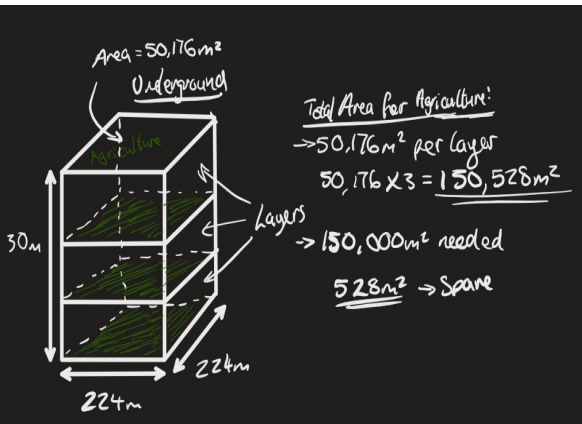 Area = 50,176m²
Underground
Agriculture
Layers
30m
224m
224m
Total Area for Agriculture:
→50,176m² per layer
50,176 x3 = 150,528m²
→ 150,000m² needed
528m² → Spare